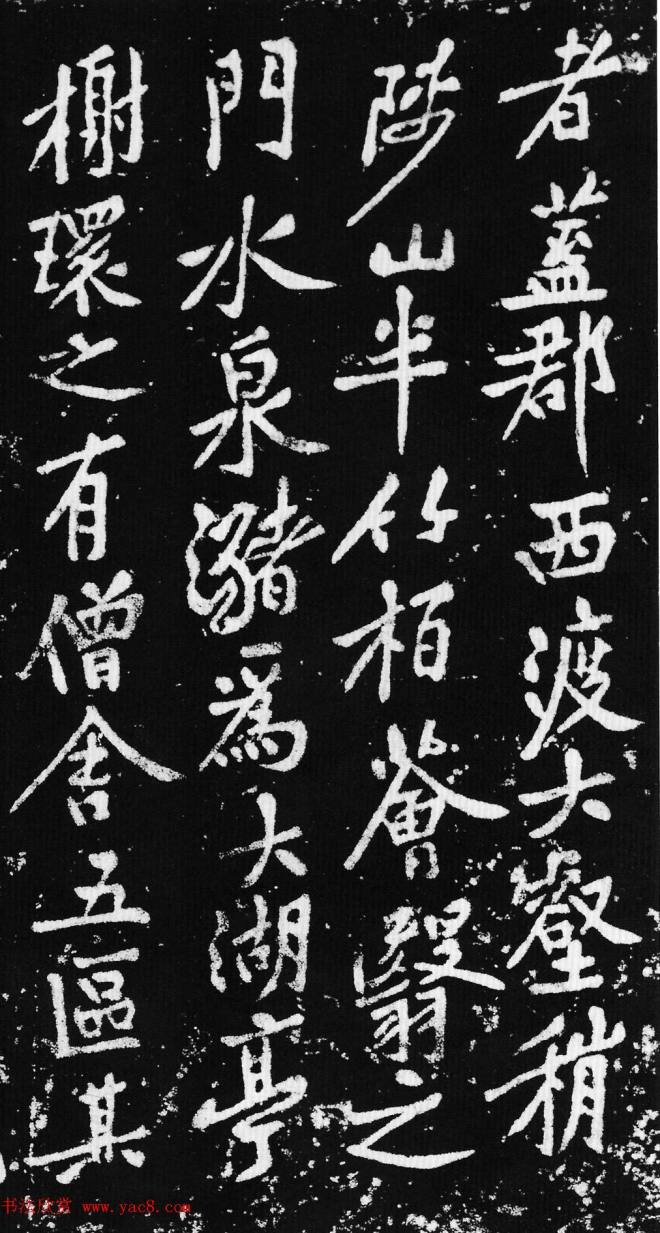 者蓋郡西渡大壑稍
陟山半竹柏薈翳之
門水泉瀦爲大湖亭
榭環之有僧舍五區其
书法欣赏 www.yac8.com